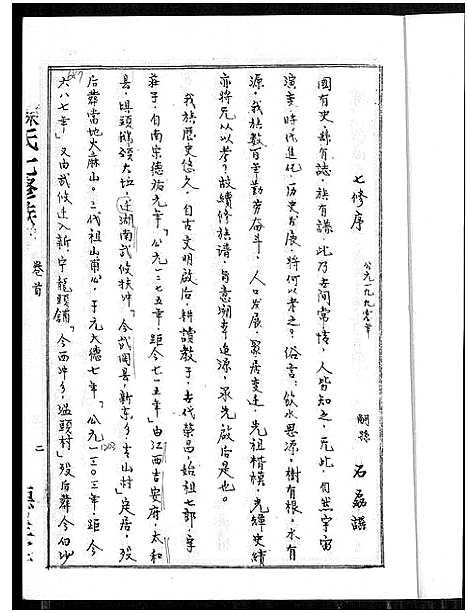 七修序
公元一九九零年
嗣孫 石磊謹
國有史，縣有誌，族有譜，此乃古間常情，人皆知之，无此，自然宇宙
演变，時代進化，历史发展，將何以考之？俗言：飲水思源，樹有根，水有
源，我族数百年勤劳奋斗，人口发展，聚居变迁，先祖楷模，光輝史績
亦將无从以考？故續修族譜，旨意溯本追源，承先啟后是也。
我族歷史悠久，自古文明啟后，耕讀教子，古代荣昌，始祖七郎，字
莊子，自南宗德祐元年「公元一二七五年，距今七一五年」由江西吉安府，太和
县，坝头鵝頸大坵，迁湖南武攸扶冲「今武岡县，新东乡，丰山村」定居，殁
后葬當地火麻山。二代祖山甫公，于元大德七年「公元一三〇三年，距今
六八七年」又由武攸迁入新宁龍頭舖「今西冲乡，塩頭村」殁后葬今白沙
1303
687
氏七修族
卷首
二